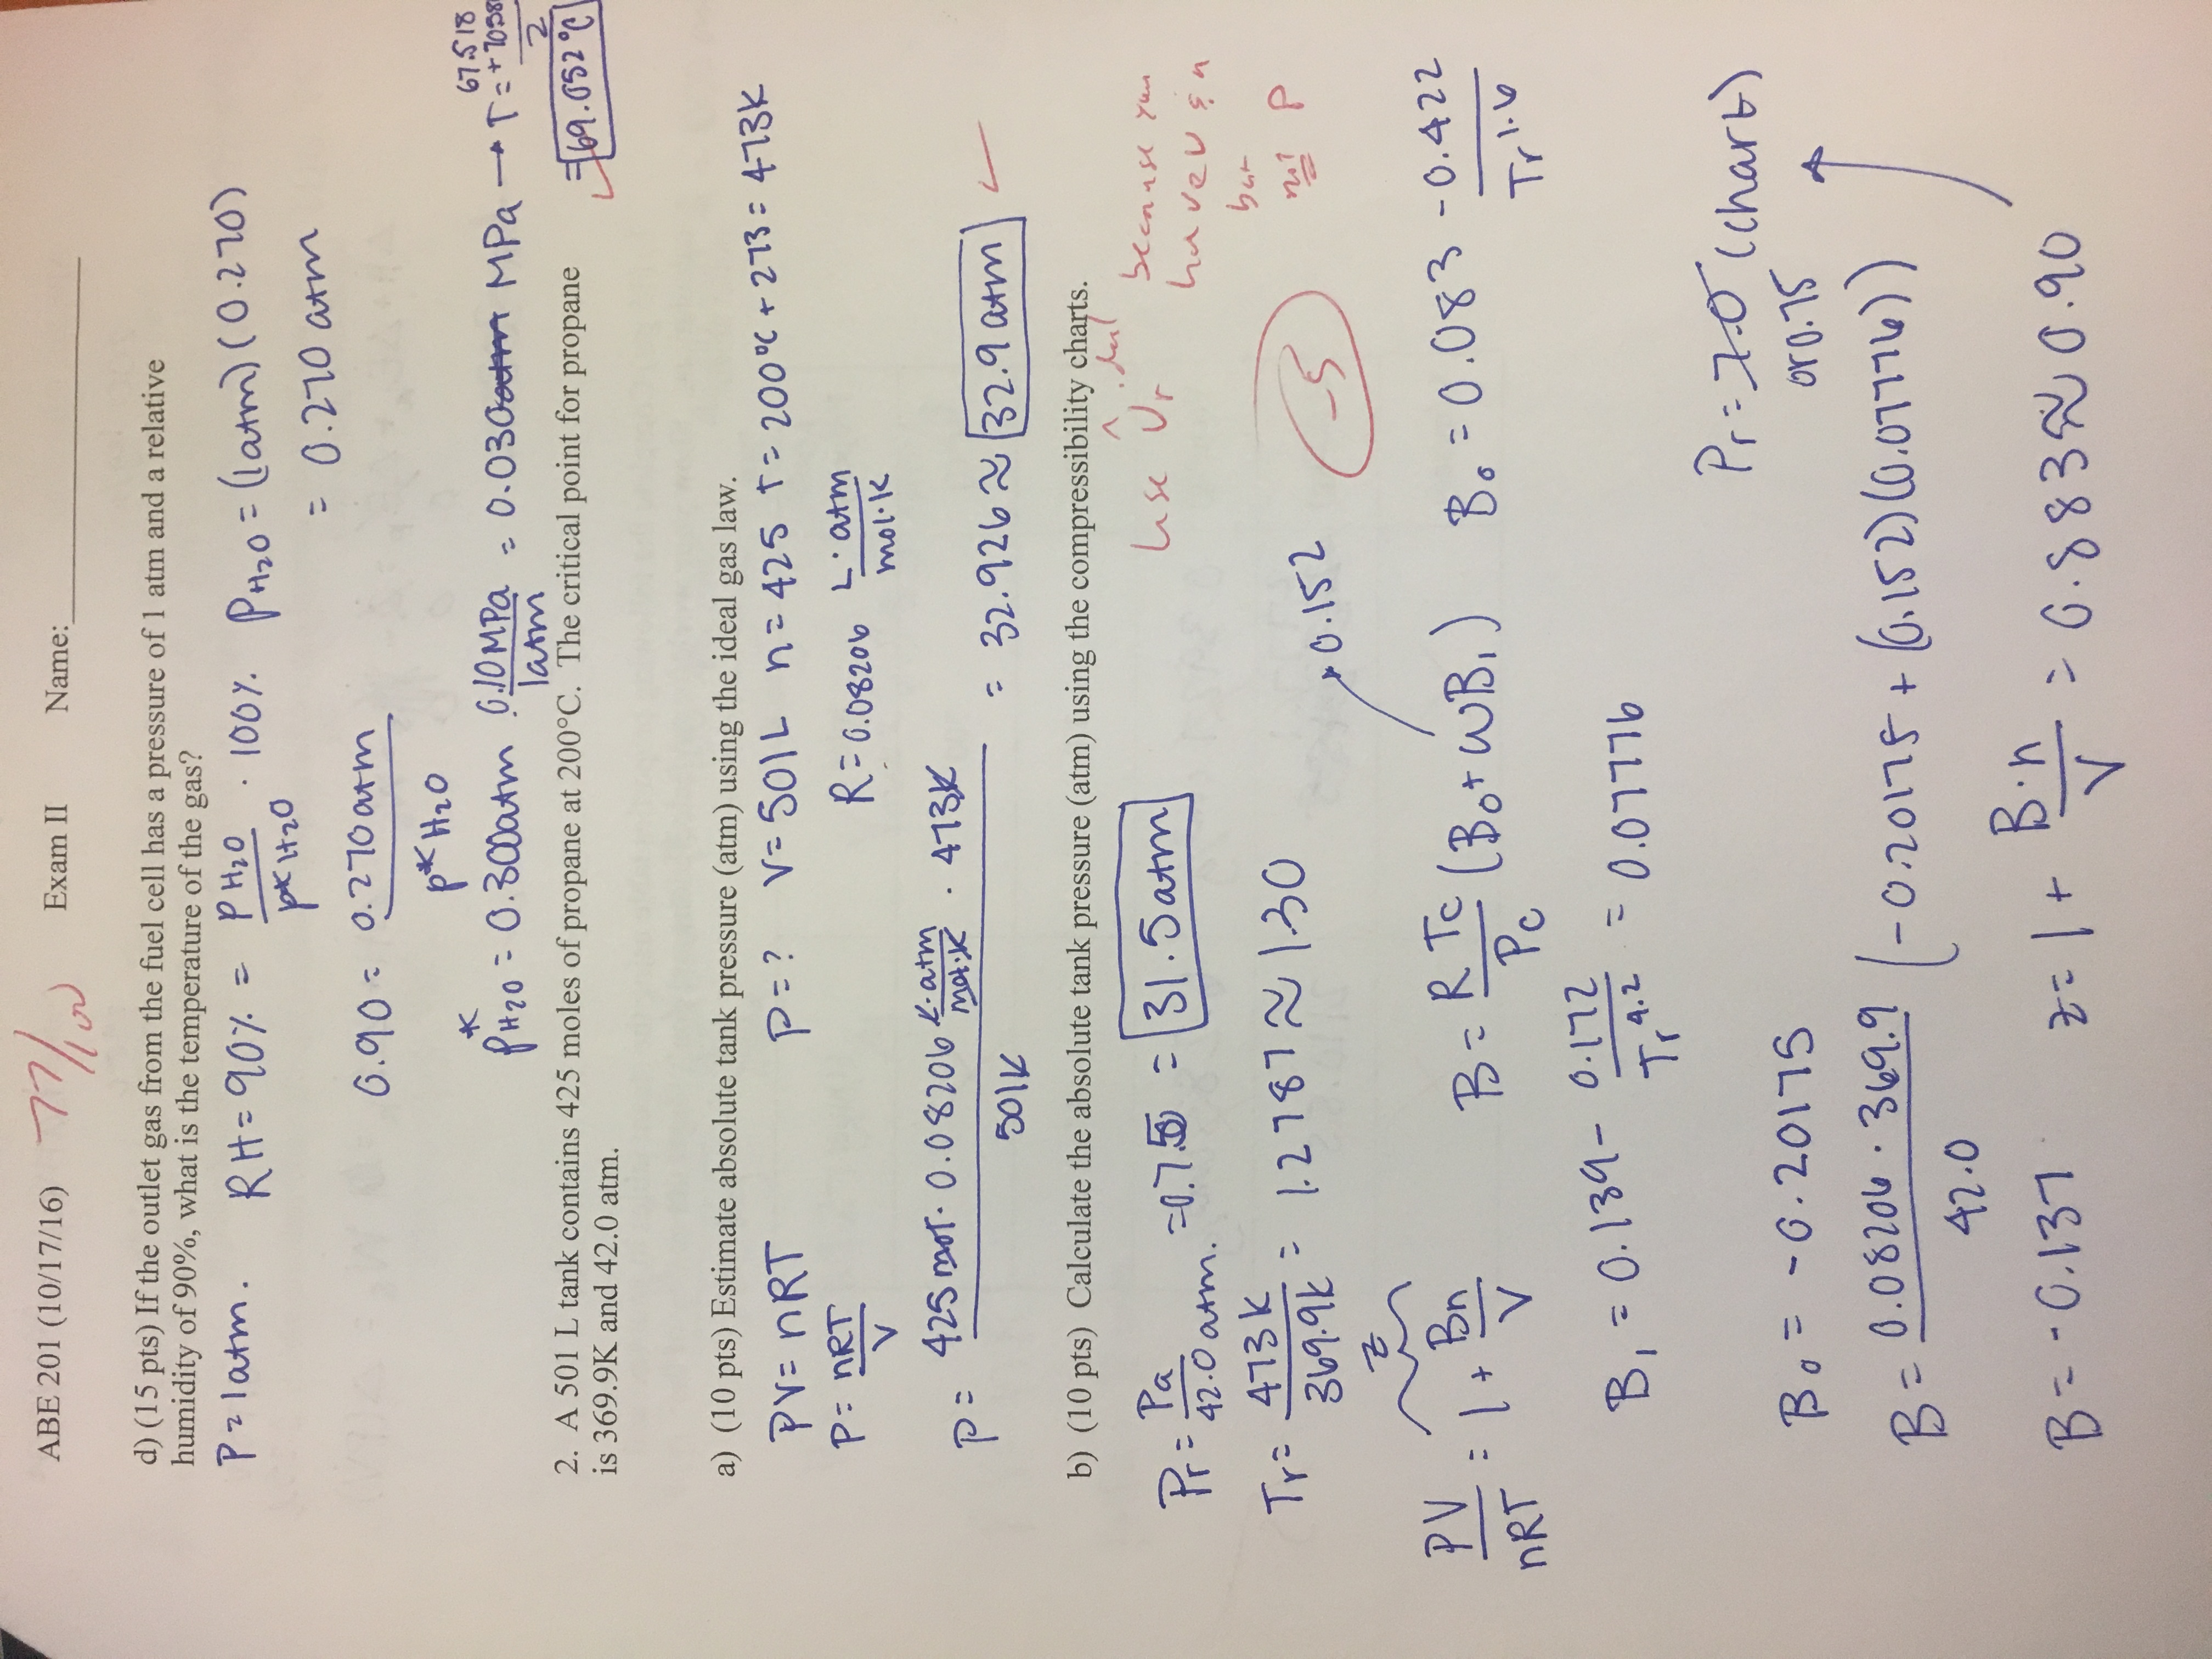 ABE 201 (10/17/16) 77/100 Exam II Name:
d) (15 pts) If the outlet gas from the fuel cell has a pressure of 1 atm and a relative
humidity of 90%, what is the temperature of the gas?
P = 1 atm. RH = 90% = P H2O / p* H2O · 100% PH2O = (1atm)(0.270)
= 0.270 atm
0.90 = 0.270 atm / p* H2O
p*H2O = 0.300atm 0.10 MPa / 1atm = 0.030 atm MPa → T = 67.518 + 70.58 / 2
= 69.052°C
2. A 501 L tank contains 425 moles of propane at 200°C. The critical point for propane
is 369.9K and 42.0 atm.
a) (10 pts) Estimate absolute tank pressure (atm) using the ideal gas law.
PV = nRT P = ? V = 501L n = 425 T = 200°C + 273 = 473K
P = nRT / V R = 0.08206 L·atm / mol·K
P = 425 mol · 0.08206 L·atm / mol·K · 473K / 501L = 32.926 ≈ 32.9 atm
b) (10 pts) Calculate the absolute tank pressure (atm) using the compressibility charts.
Pr = Pa / 42.0 atm. = 0.75 = 31.5 atm
Use V̂r ideal because you
have v & n
but
not P
Tr = 473K / 369.9K = 1.2787 ≈ 1.30
-5
z 0.152
PV / nRT = 1 + Bn / V B = R Tc / Pc (B0 + ωB1) B0 = 0.083 - 0.422 / Tr^1.6
B1 = 0.139 - 0.172 / Tr^4.2 = 0.07776
Pr = 7.0 (chart)
or 0.75
B0 = -0.20175
B = 0.08206 · 369.9 / 42.0 (-0.20175 + (0.152)(0.07776))
B = -0.137 z = 1 + B·n / V = 0.883 ≈ 0.90